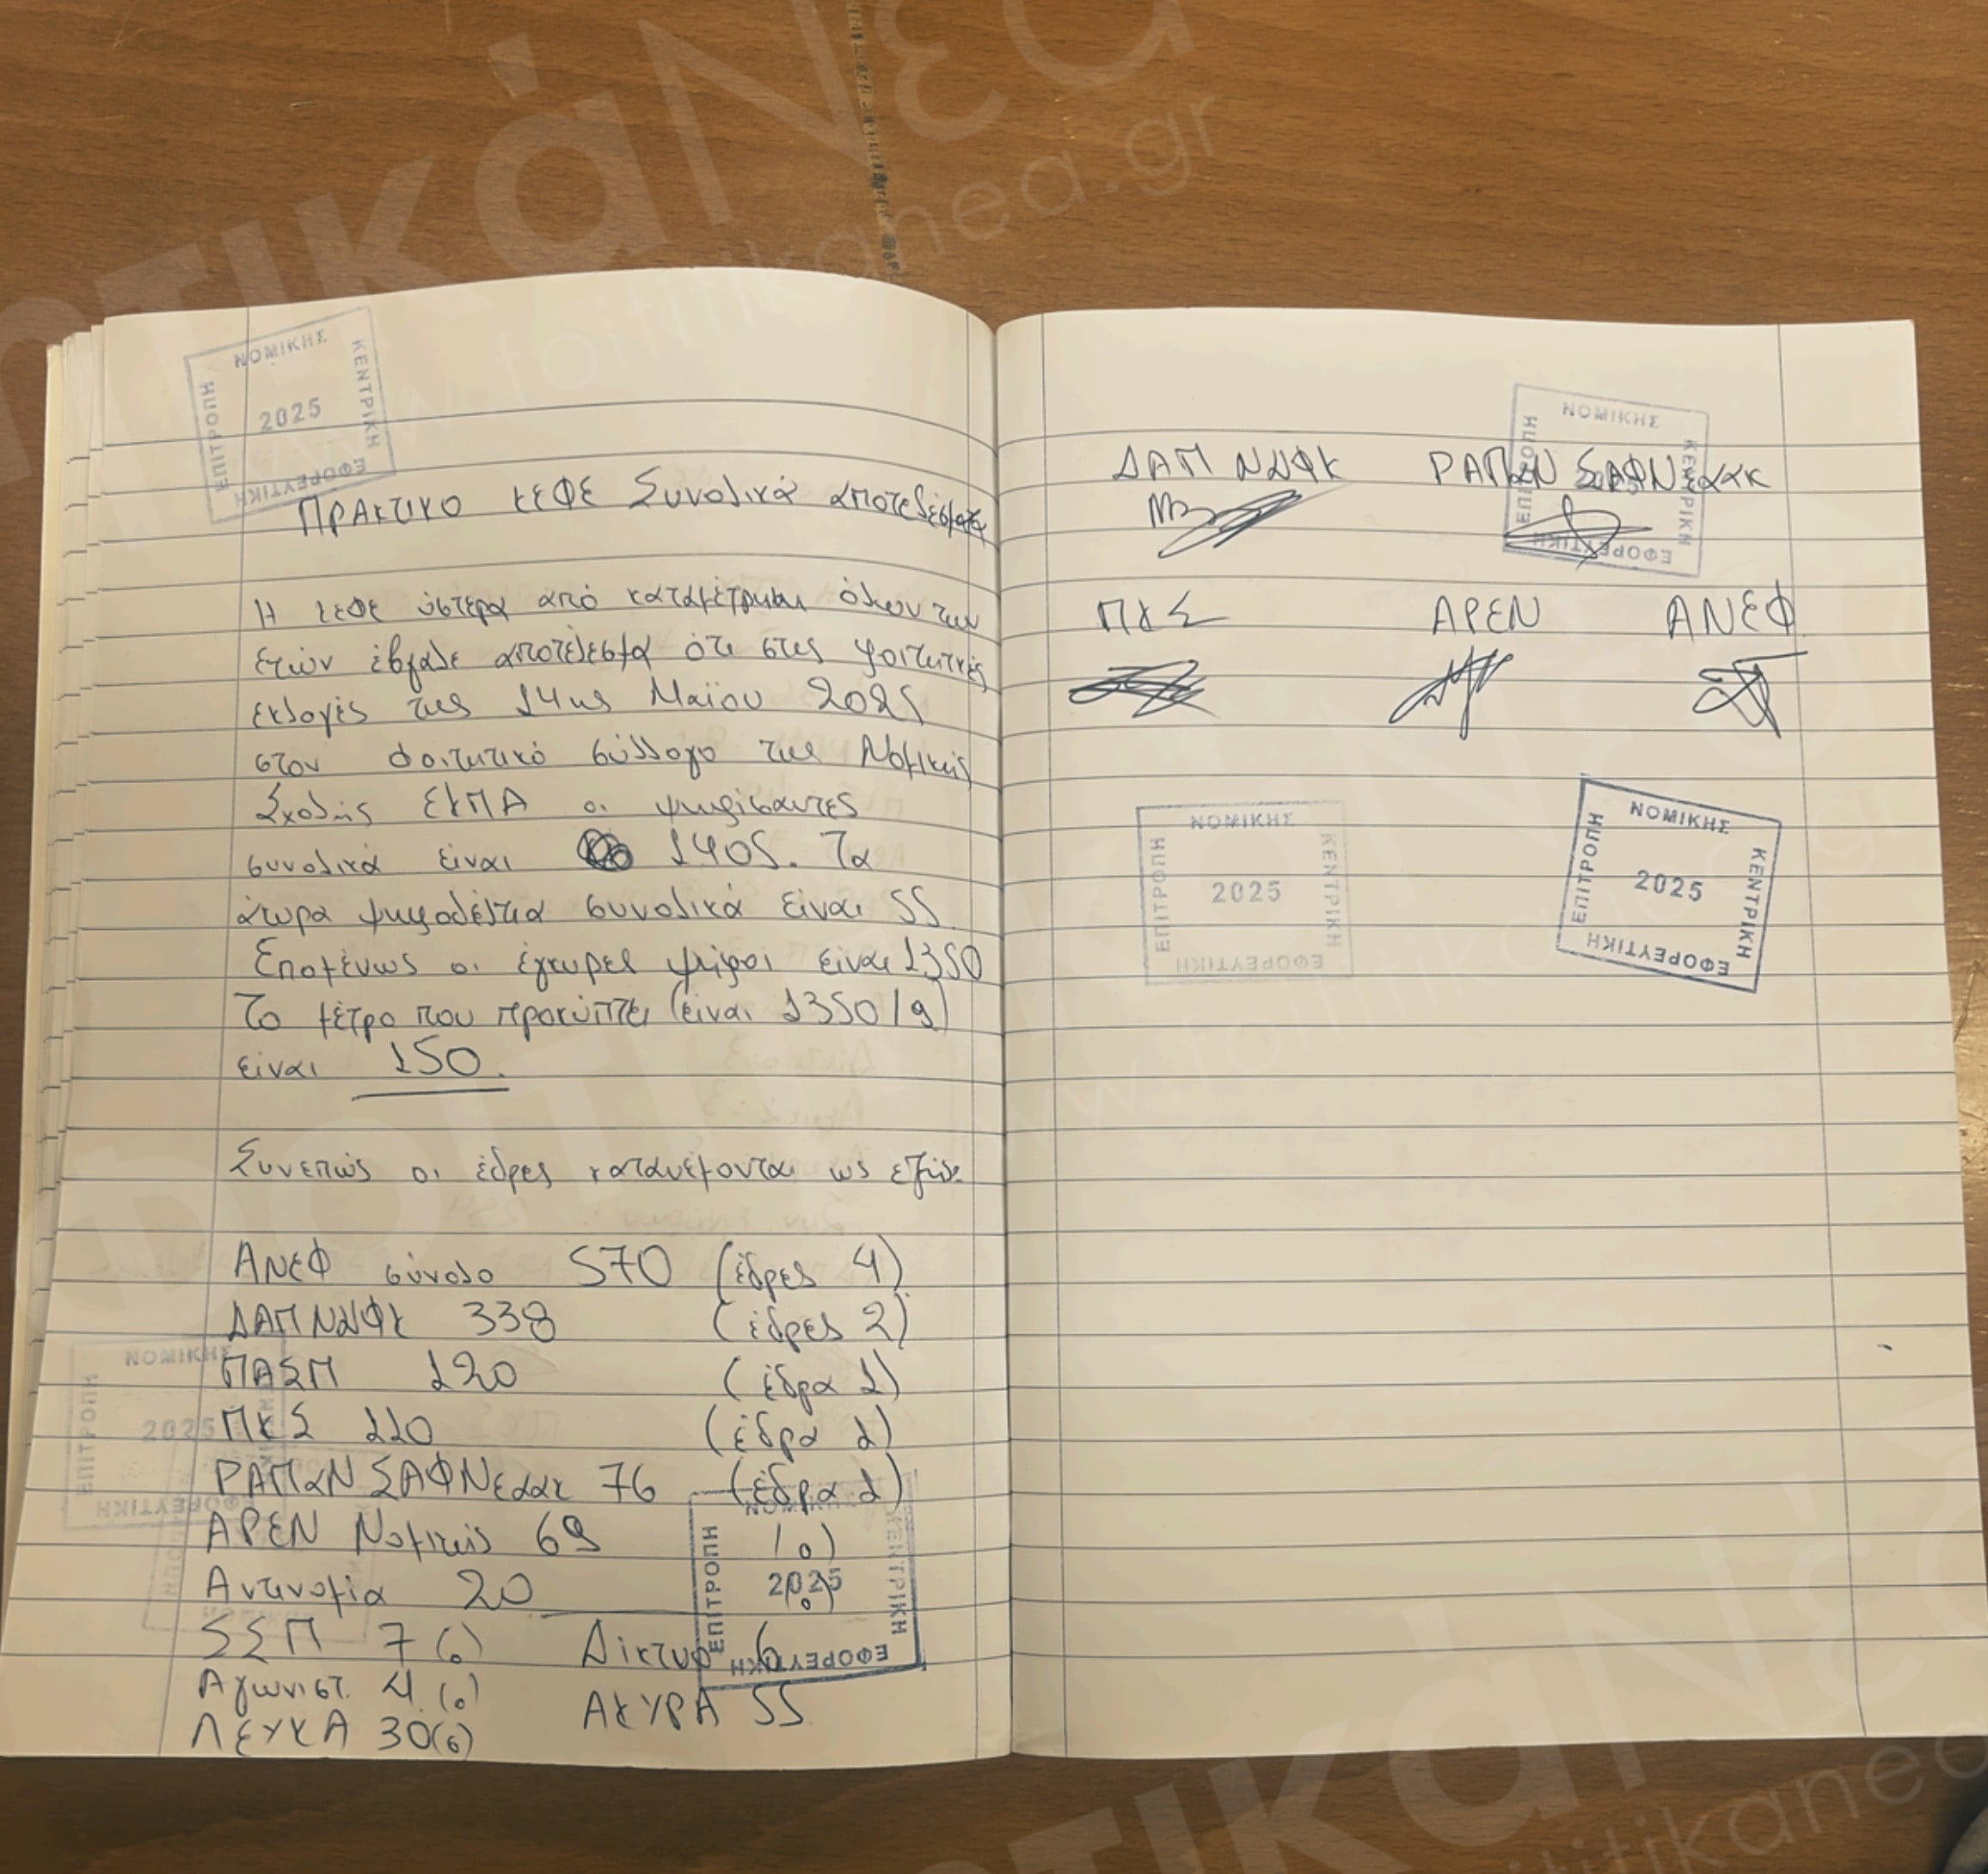 ΠΡΑΚΤΙΚΟ ΚΕΦΕ Συνολικά αποτελέσματα
Η ΚΕΦΕ ύστερα από καταμέτρηση όλων των
ετών έβγαλε αποτέλεσμα ότι στις φοιτητικές
εκλογές της 14ης Μαΐου 2025
στον Φοιτητικό σύλλογο της Νομικής
Σχολής ΕΚΠΑ οι ψηφίσαντες
συνολικά είναι 1405. Τα
άκυρα ψηφοδέλτια συνολικά είναι 55
Επομένως οι έγκυρες ψήφοι είναι 1350
Το μέτρο που προκύπτει (είναι 1350/9)
είναι 150.
Συνεπώς οι έδρες κατανέμονται ως εξής:
ΑΝΕΦ σύνολο 570 (έδρες 4)
ΔΑΠ ΝΔΦΚ 338 (έδρες 2)
ΠΑΣΠ 120 (έδρα 1)
ΠΚΣ 110 (έδρα 1)
ΡΑΠΑΝ ΣΑΦΝ ΕΑΑΚ 76 (έδρα 1)
ΑΡΕΝ Νομικής 69 (0)
Αντινομία 20 (0)
ΣΣΠ 7 (0) Δίκτυο 6
Αγωνιστ. 4 (0) ΑΚΥΡΑ 55
ΛΕΥΚΑ 30 (0)
ΔΑΠ ΝΔΦΚ ΡΑΠΑΝ ΣΑΦΝ ΕΑΑΚ
ΠΚΣ ΑΡΕΝ ΑΝΕΦ
ΝΟΜΙΚΗΣ
ΚΕΝΤΡΙΚΗ
ΕΦΟΡΕΥΤΙΚΗ
ΕΠΙΤΡΟΠΗ
2025
ΝΟΜΙΚΗΣ
ΚΕΝΤΡΙΚΗ
ΕΦΟΡΕΥΤΙΚΗ
ΕΠΙΤΡΟΠΗ
ΝΟΜΙΚΗΣ
ΚΕΝΤΡΙΚΗ
ΕΦΟΡΕΥΤΙΚΗ
ΕΠΙΤΡΟΠΗ
2025
ΝΟΜΙΚΗΣ
ΚΕΝΤΡΙΚΗ
ΕΦΟΡΕΥΤΙΚΗ
ΕΠΙΤΡΟΠΗ
2025
ΝΟΜΙΚΗΣ
ΕΦΟΡΕΥΤΙΚΗ
ΕΠΙΤΡΟΠΗ
2025
ΚΕΝΤΡΙΚΗ
ΕΦΟΡΕΥΤΙΚΗ
ΕΠΙΤΡΟΠΗ
2025